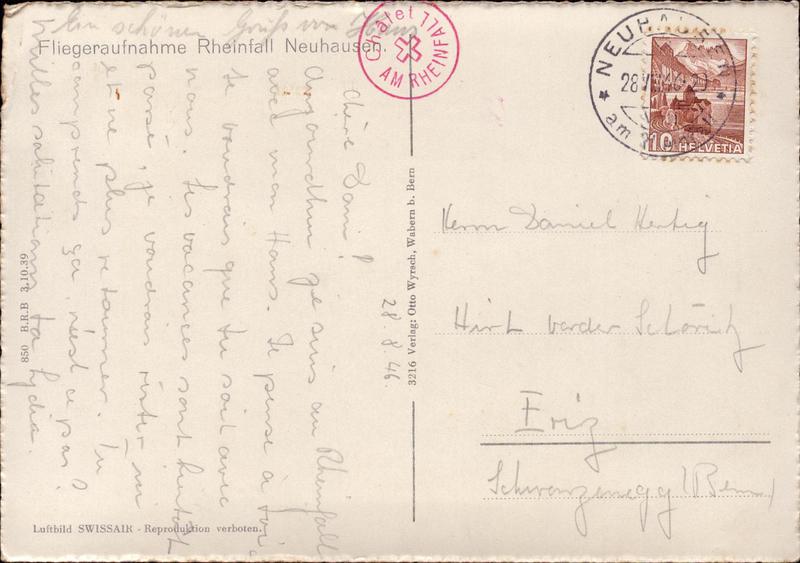 Ein schönen Gruss von Hans
Fliegeraufnahme Rheinfall Neuhausen.
Châlet
AM RHEINFALL
NEUHAUSEN
28.VIII.46-20
am
10 HELVETIA
28.8.46.
Chère Dani!
Aujourdhui je suis au Rheinfall
avec mon Hans. Je pense à toi
te voudrais que tu soit avec
nous. Les vacances sont bientôt
passé, je voudrais
plus retourner. Tu
comprends ça n'est ce pas?
Milles salutations ta Lydia.
Herrn Daniel Hertig
Hirt vorder Schöritz
Eriz
Schwarzenegg (Bern)
3216 Verlag: Otto Wyrsch, Wabern b. Bern
850 B.R.B 3.10.39
Luftbild SWISSAIR - Reproduktion verboten.